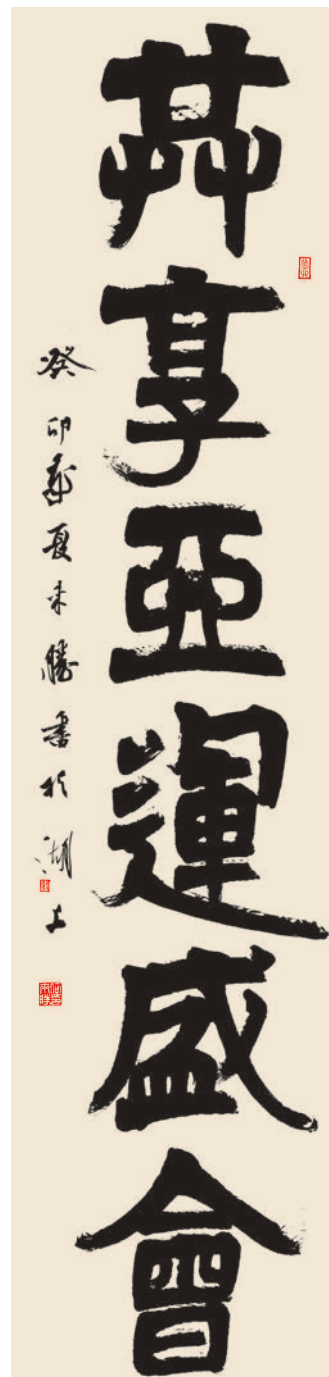 共享亞運盛會
癸卯年夏来勝書於湖上